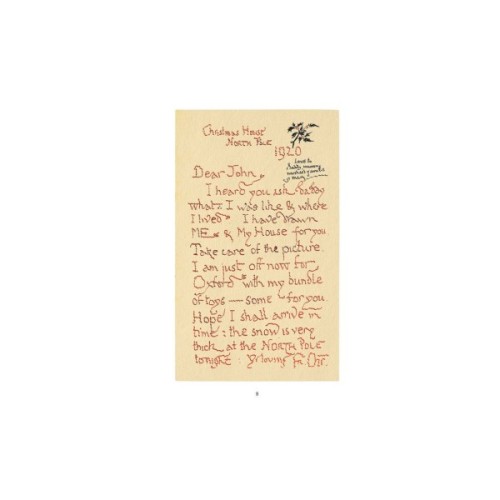 Christmas House
North Pole
1920
Love to
daddy, mummy
michael & auntie
mary
Dear John,
I heard you ask daddy
what I was like & where
I lived I have drawn
ME & My House for you
Take care of the picture.
I am just off now for
Oxford with my bundle
of toys — some for you.
Hope I shall arrive in
time: the snow is very
thick at the NORTH POLE
tonight. Yr loving Fr. Chr.